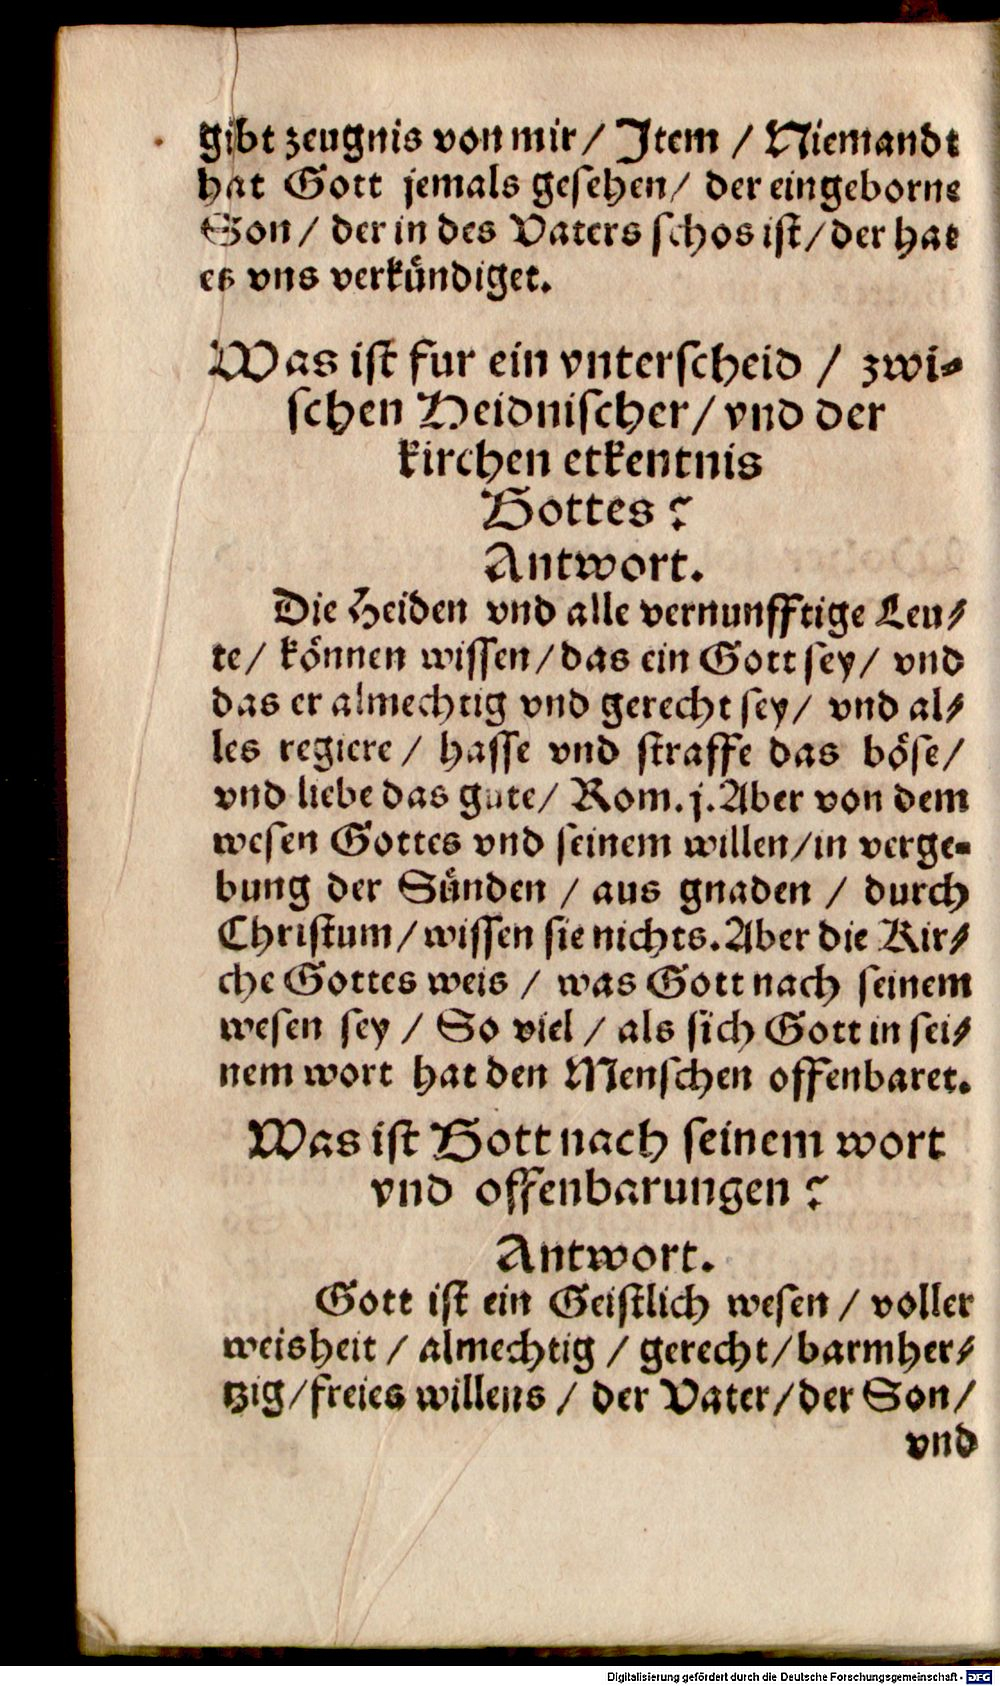 gibt zeugnis von mir / Item / Niemandt
hat Gott jemals gesehen / der eingeborne
Son / der in des Vaters schos ist / der hat
es vns verkündiget.
Was ist fur ein vnterscheid / zwi-
schen Heidnischer / vnd der
kirchen etkentnis
Gottes?
Antwort.
Die Heiden vnd alle vernunfftige Leu-
te / können wissen / das ein Gott sey / vnd
das er almechtig vnd gerecht sey / vnd al-
les regiere / hasse vnd straffe das böse /
vnd liebe das gute / Rom. j. Aber von dem
wesen Gottes vnd seinem willen / in verge-
bung der Sünden / aus gnaden / durch
Christum / wissen sie nichts. Aber die Kir-
che Gottes weis / was Gott nach seinem
wesen sey / So viel / als sich Gott in sei-
nem wort hat den Menschen offenbaret.
Was ist Gott nach seinem wort
vnd offenbarungen?
Antwort.
Gott ist ein Geistlich wesen / voller
weisheit / almechtig / gerecht / barmher-
tzig / freies willens / der Vater / der Son /
vnd
Digitalisierung gefördert durch die Deutsche Forschungsgemeinschaft - DFG